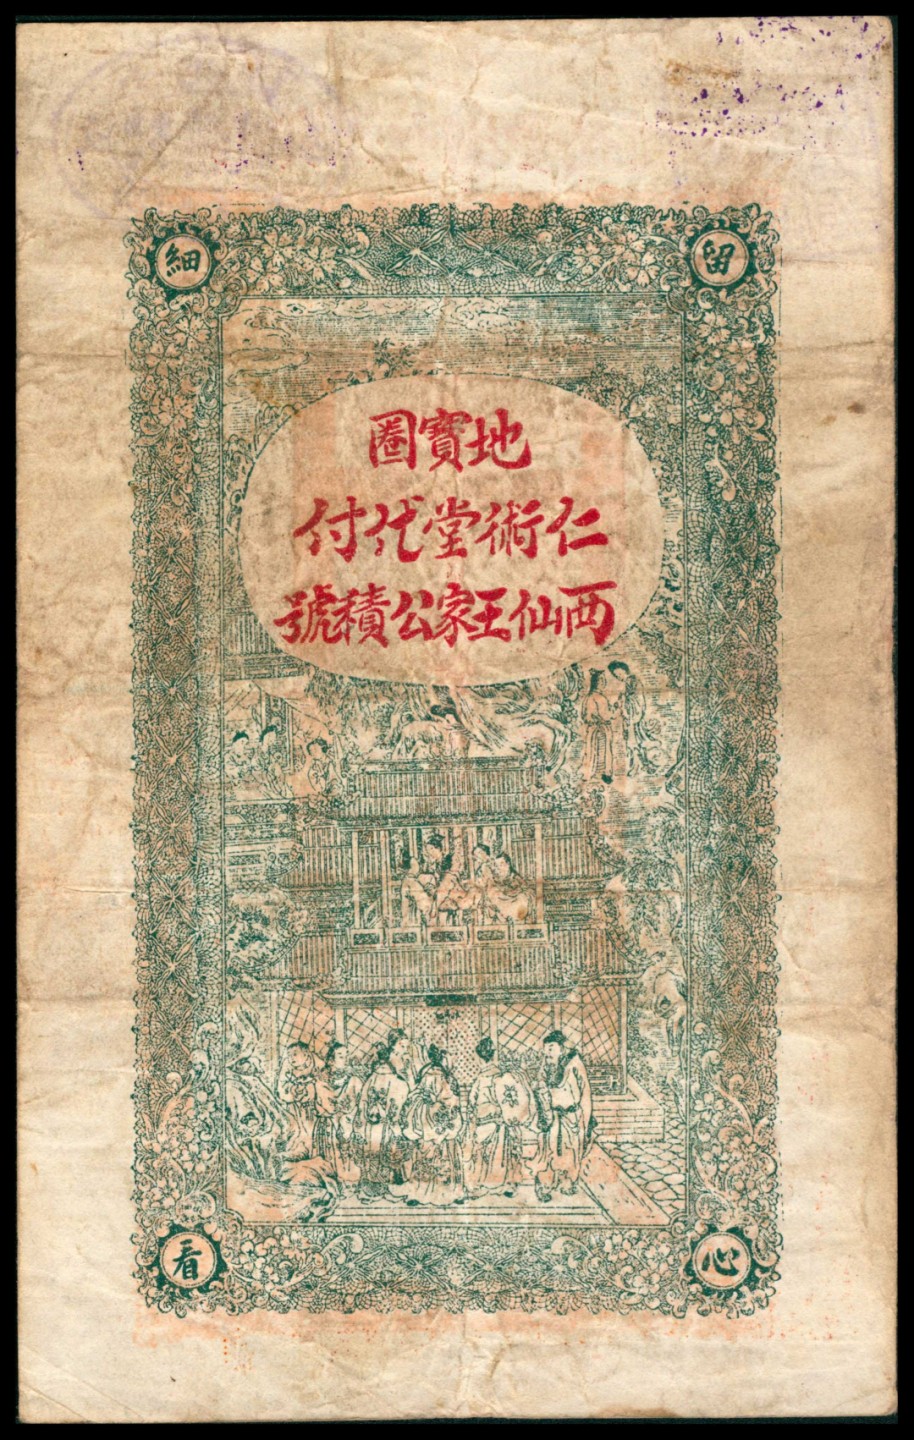 留心細看
地寶圈
仁術堂代付
西仙王家公積號